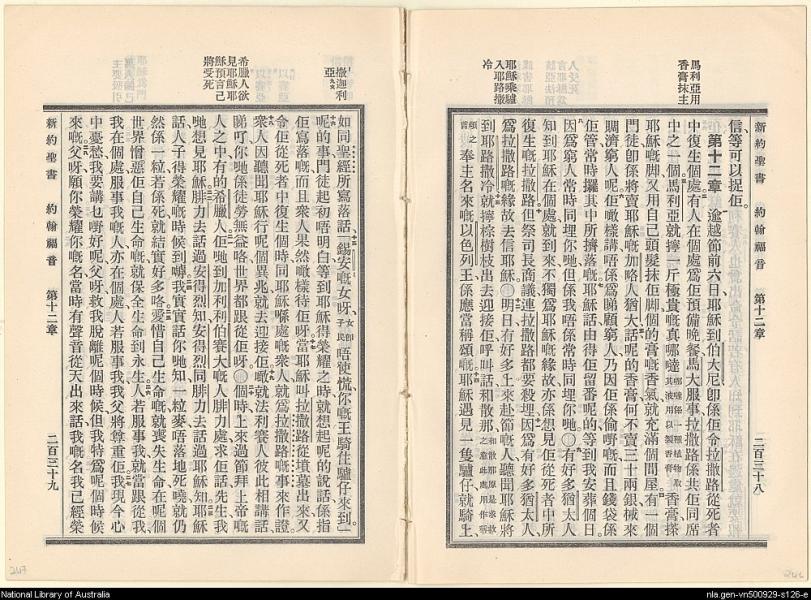 新約聖書 約翰福音 第十二章 二百三十八
馬利亞用
香膏抹主
耶穌乘驢
入耶路撒
冷
信等可以捉佢
第十二章 逾越節前六日耶穌到伯大尼卽係佢令拉撒路從死者
中復生個處有人在個處爲佢預備晚餐馬大服事拉撒路係共佢同席
中之一個馬利亞就擰一斤極貴嘅真哪噠
香膏搽
耶穌嘅脚又用自己頭髮抹佢脚個的膏嘅香氣就充滿個間屋有一個
門徒卽係將賣耶穌嘅加略人猶大話呢的香膏何不賣三十兩銀嚟來
賙濟窮人呢佢噉樣講唔係爲睇顧窮人乃因佢係偷嘢嘅而且錢袋係
佢管常時攞其中所擠落嘅耶穌話由得佢留番呢的等到我安葬個日
因爲窮人常時同埋你哋但係我唔係常時同埋你哋〇有好多猶太人
知到耶穌在個處就到來不獨爲耶穌嘅緣故亦係想見佢從死者中所
復生嘅拉撒路但祭司長商議連拉撒路都要殺埋因爲有好多猶太人
爲拉撒路嘅緣故去信耶穌〇明日有好多上來赴節嘅人聽聞耶穌將
到耶路撒冷就擰棕樹枝出去迎接佢呼叫話和散那
奉主名來嘅以色列王係應當稱頌嘅耶穌遇見一隻驢仔就騎上
撒迦利
亞
希臘人欲
見耶穌耶
穌預言己
將受死
如同聖經所寫落話錫安嘅女呀
唔使慌你嘅王騎住驢仔來到
呢的事門徒起初唔明白等到耶穌得榮耀之時就想起呢的說話係指
佢寫落嘅而且衆人果然噉樣待佢呀當耶穌叫拉撒路從墳墓出來又
令佢從死者中復生個時同耶穌喺處嘅衆人就爲拉撒路嘅事來作證
衆人因聽聞耶穌行呢個異兆就去迎接佢噉就法利賽人彼此相講話
睇吓你哋係徒勞無益咯世界都跟從佢呀〇個時上來過節拜上帝嘅
人之中有的希臘人佢哋到加利利伯賽大嘅人腓力處求佢話先生我
哋想見耶穌腓力去話過安得烈知安得烈同腓力去話過耶穌知耶穌
話人子得榮耀嘅時候到嚹我實實話你哋知一粒麥唔落地死曉就仍
然係一粒若係死就結實好多咯愛惜自己生命嘅就喪失生命在呢個
世界憎惡佢自己生命嘅就保全生命到永生人若服事我就當跟從我
我在個處服事我嘅人亦在個處人若服事我我父將尊重佢我現今心
中憂愁我要講乜嘢好呢父呀救我脫離呢個時候但我特爲呢個時候
來嘅父呀願你榮耀你嘅名當時有聲音從天出來話我嘅名我已經榮
新約聖書 約翰福音 第十二章 二百三十九
National Library of Australia
nla.gen-vn500929-s126-e